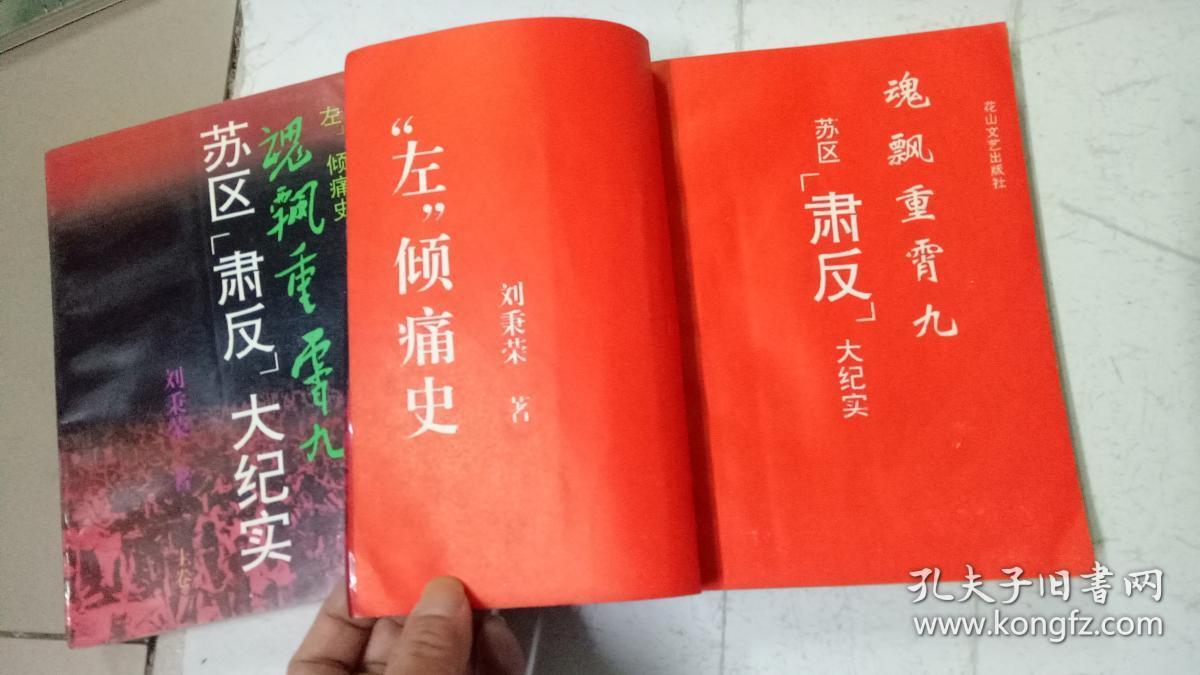 左」倾痛史
魂飘重霄九
苏区「肃反」大纪实
刘秉荣 著
上卷
“左”倾痛史
刘秉荣 著
花山文艺出版社
魂飘重霄九
苏区「肃反」大纪实
孔夫子旧书网
www.kongfz.com